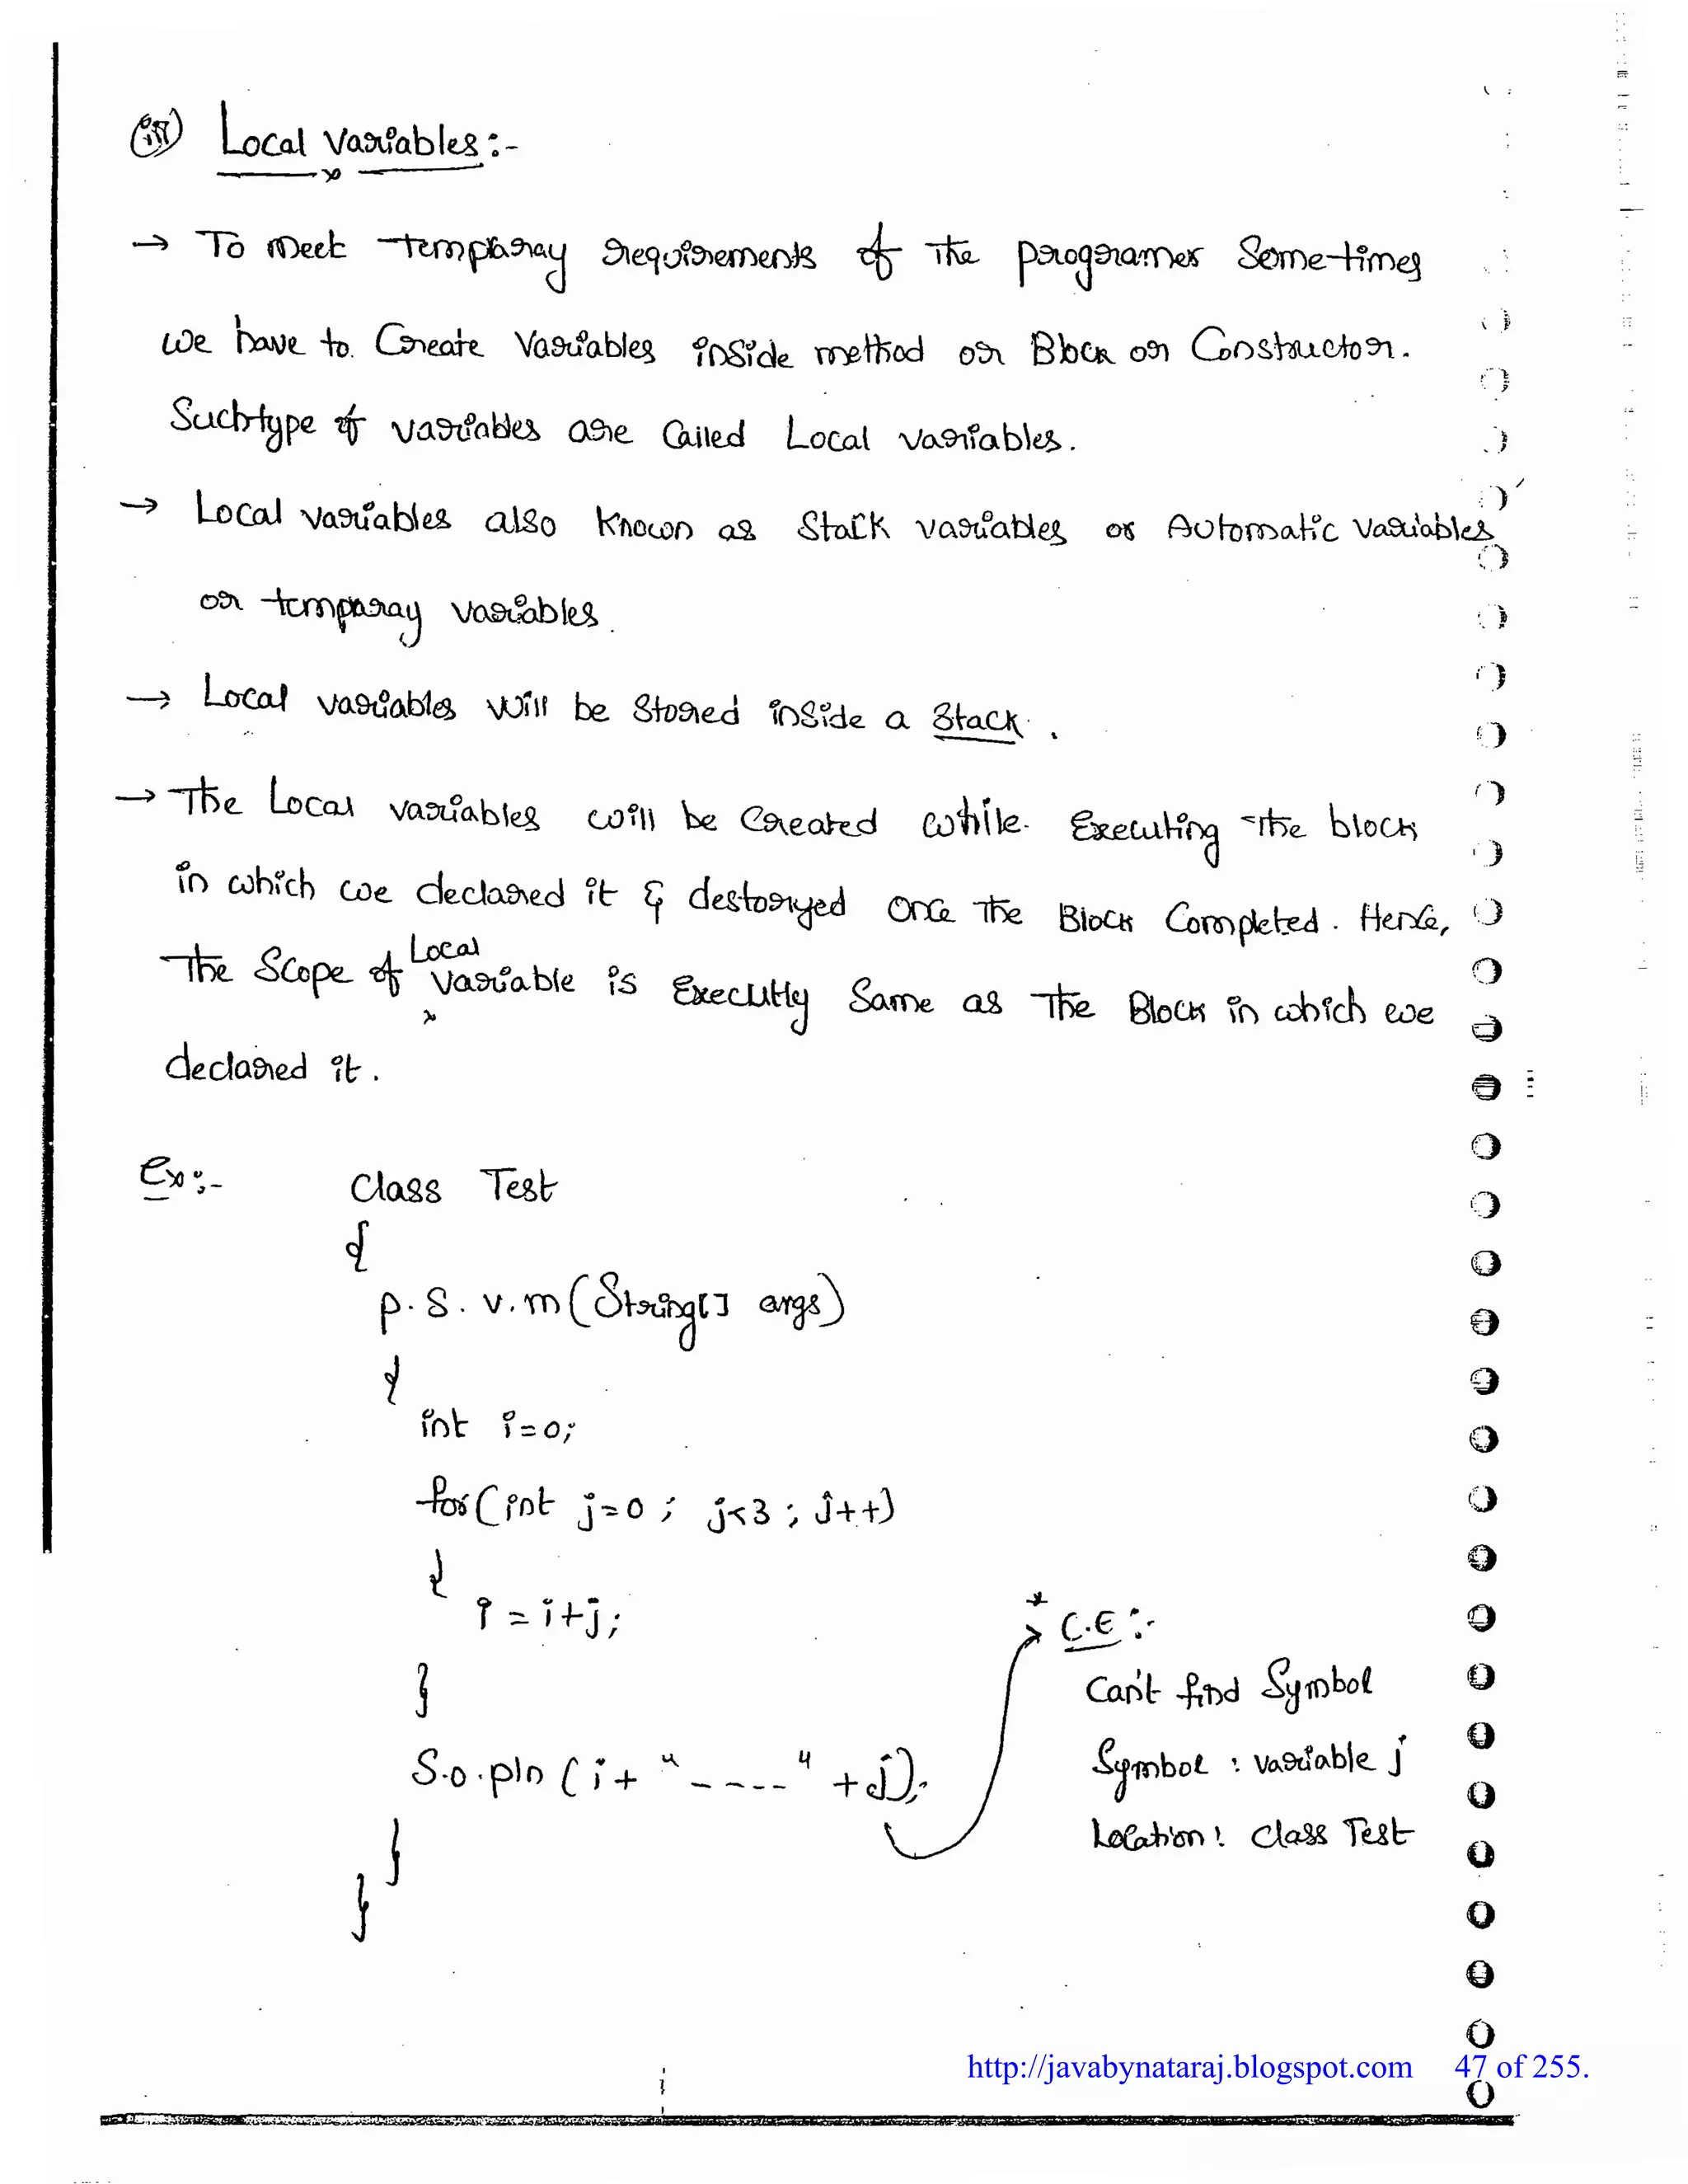 (iii) Local Variables:-
→ To meet temparay requirements of the programer Some-times
we have to Create Variables inside method or Block or Constructor.
Such type of variables are Called Local variables.
→ Local variables also known as Stack variables or Automatic variables
or temparay variables.
→ Local variables will be Stored inside a Stack.
→ The Local variables will be Created while Executing the block
in which we declared it & destoryed Once the Block Completed. Hence,
The Scope of Local variable is Executly Same as The Block in which we
declared it.
Ex:- Class Test
{
P.S.V.m(String[] args)
{
int i=0;
for(int j=0; j<3; j++)
{
i = i+j;
}
S.o.pln(i+ "----" +j);
}
}
* C.E:-
Can't find Symbol
Symbol : variable j
Location: class Test
http://javabynataraj.blogspot.com 47 of 255.